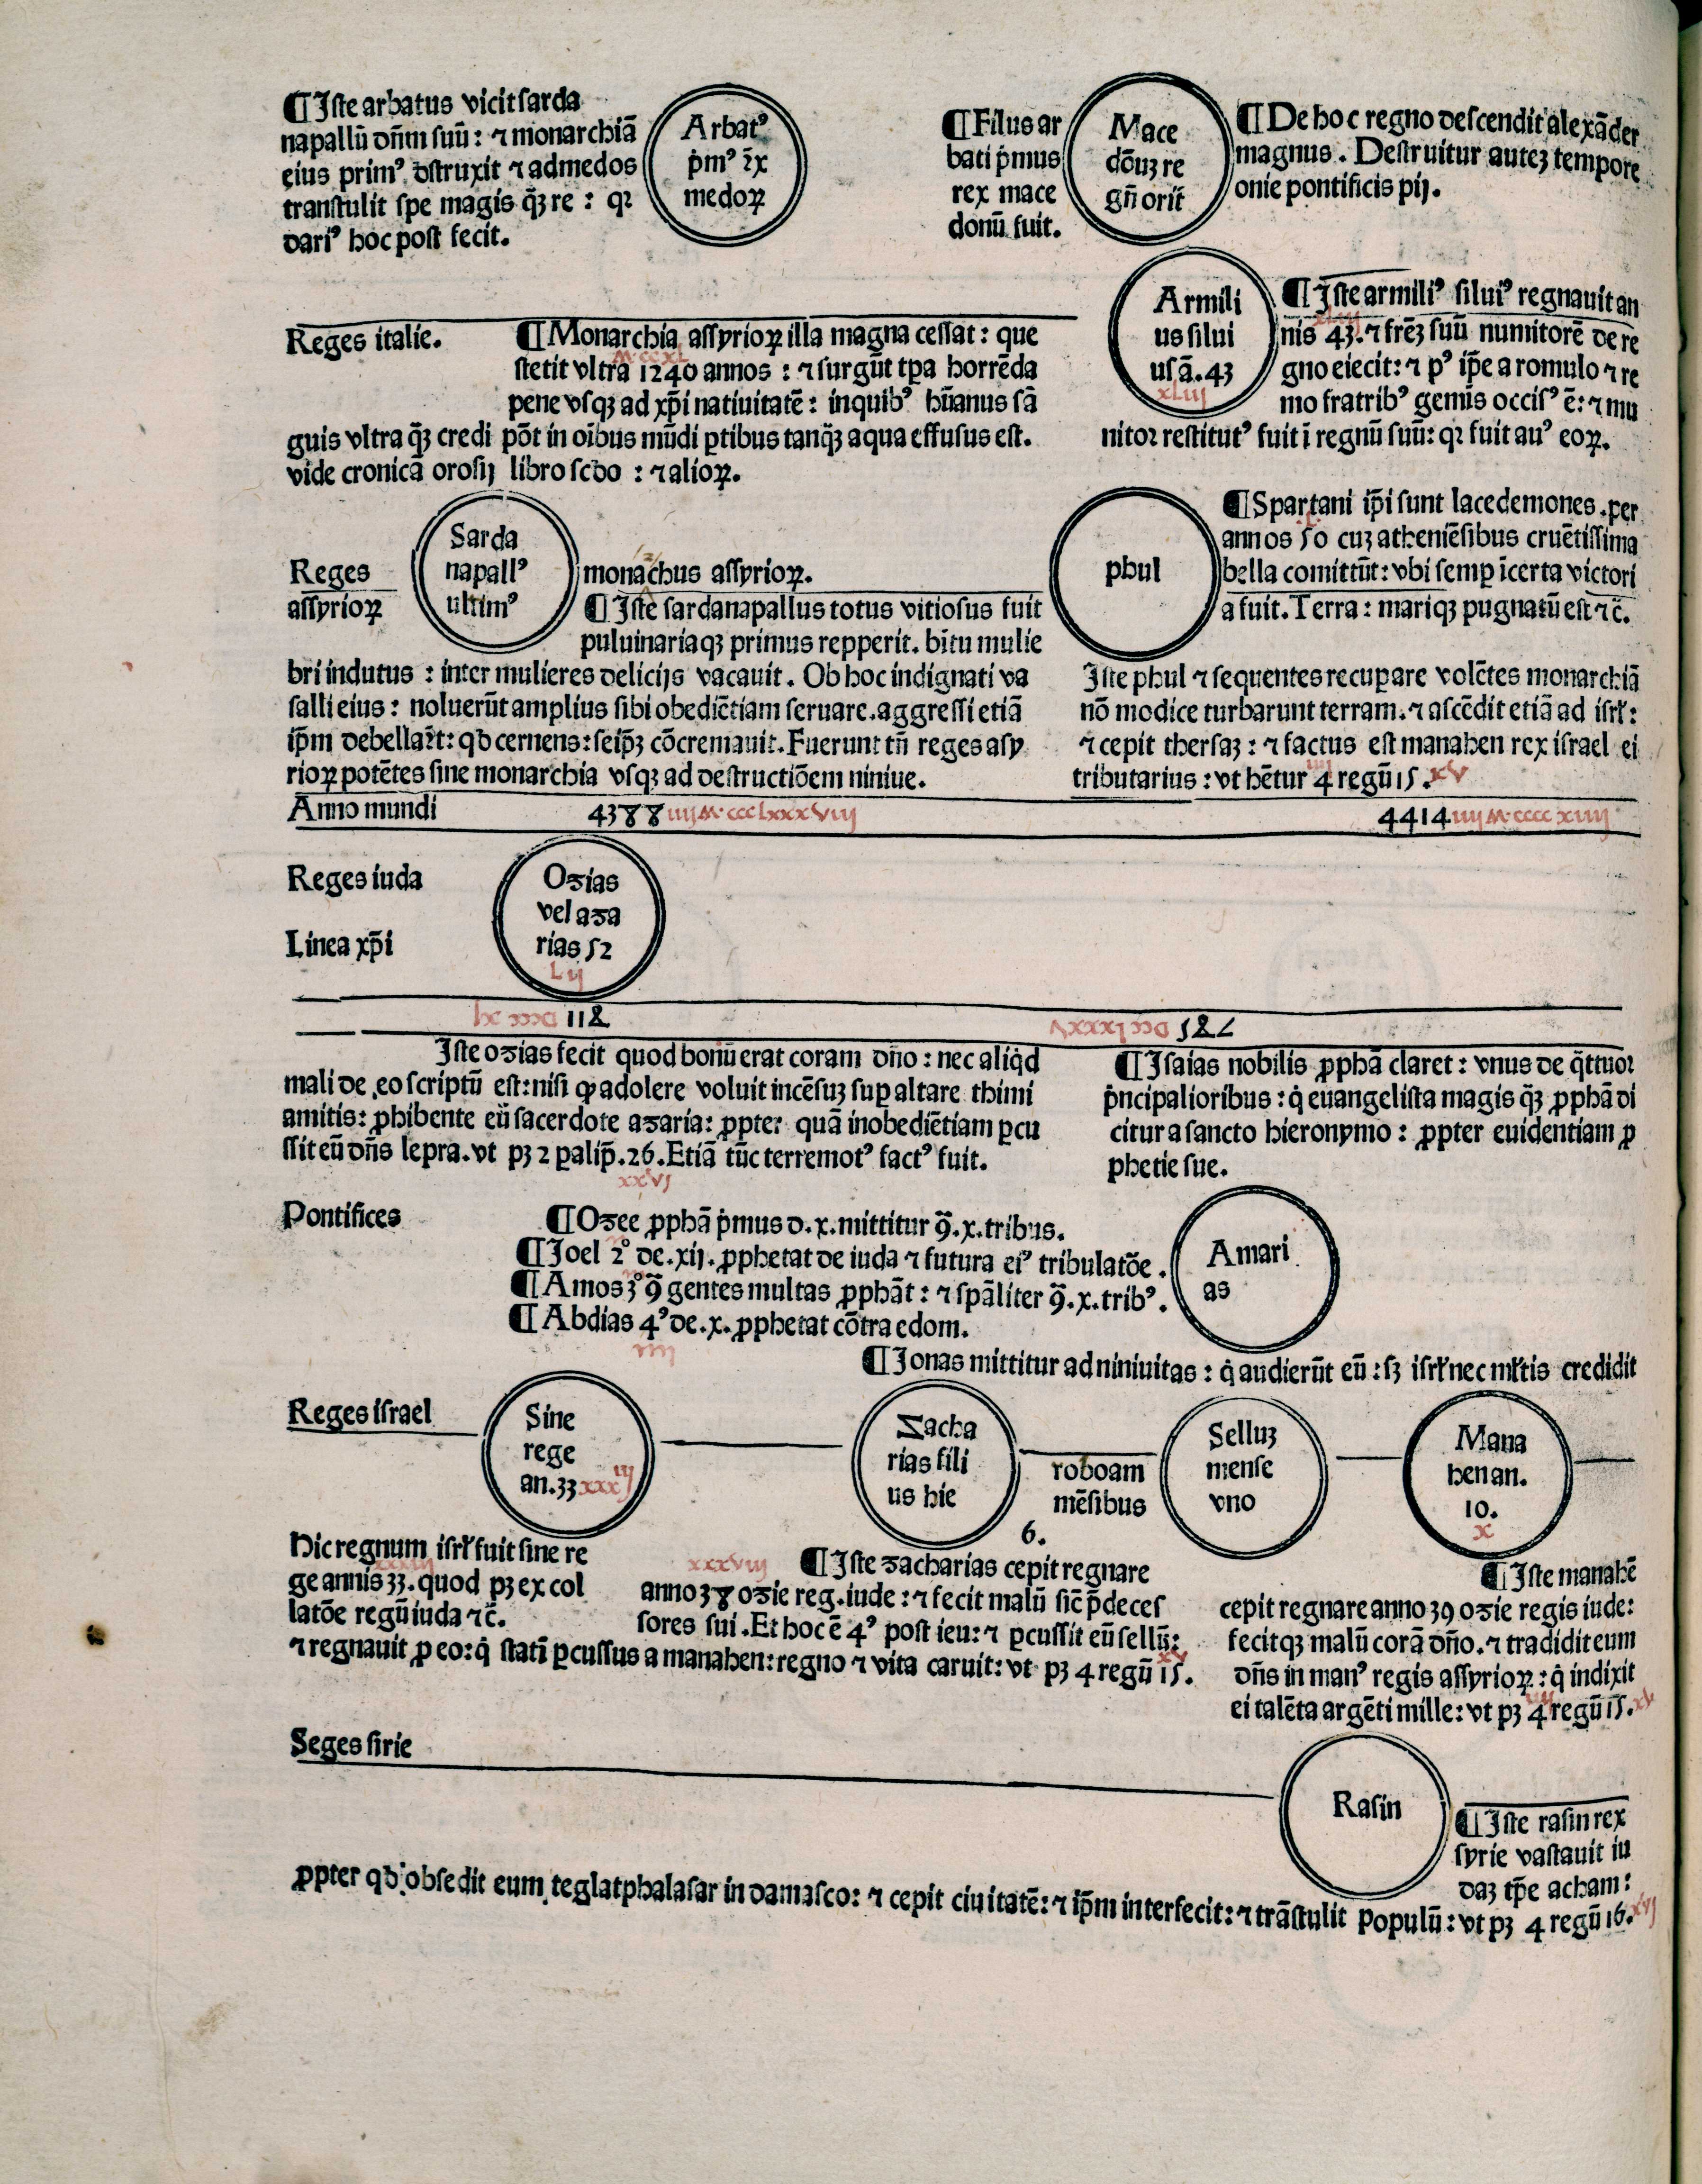 ¶Iste arbatus vicit sarda
napallū dn̄m suū: ⁊ monarchiā
eius prim⁹ dstruxit ⁊ admedos
transtulit spe magis q̄ꝫ re : qꝛ
dari⁹ hoc post fecit.
Arbat⁹
pm⁹ rex
medoꝝ
¶Filus ar
bati pmus
rex mace
donū fuit.
Mace
dōuꝫ re
gn̄ orit̄
¶De ho c regno descendit alexāder
magnus. Destruitur auteꝫ tempore
onie pontificis pij.
Armili
us silui
us ā. 43
xliij
¶Iste armili⁹ silui⁹ regnauit an
nis 43. ⁊ frēꝫ suū numitorē de re
gno eiecit: ⁊ p⁹ ip̄e a romulo ⁊ re
mo fratrib⁹ gemis occis⁹ ē: ⁊ mu
nitor restitut⁹ fuit ī regnū suū: qꝛ fuit au⁹ eoꝝ.
Reges italie.
¶Monarchia assyrioꝝ illa magna cessat: que
stetit vltra 1240 annos : ⁊ surgūt tp̄a horrēda
pene vsqꝫ ad xp̄i natiuitatē: inquib⁹ hūanus sā
guis vltra q̄ꝫ credi pōt in oībus mūdi ꝑtibus tanq̄ꝫ aqua effusus est.
vide cronicā orosij libro scdo : ⁊ alioꝝ.
Reges
assyrioꝝ
Sarda
napall⁹
ultim⁹
monachus assyrioꝝ.
¶Iste sardanapallus totus vitiosus fuit
puluinariaqꝫ primus repperit. bītu mulie
bri indutus : inter mulieres delicijs vacauit. Ob hoc indignati va
salli eius: noluerūt amplius sibi obediētiam seruare. aggressi etiā
ip̄m debellar̄t: qd cernens: seip̄ꝫ cōcremauit. Fuerunt tn̄ reges asy
rioꝝ potētes sine monarchia vsqꝫ ad destructiōem niniue.
phul
¶Spartani ip̄i sunt lacedemones. per
annos 50 cuꝫ atheniēsibus cruētissima
bella comittūt: vbi semꝑ īcerta victori
a fuit. Terra : mariqꝫ pugnatū est ⁊c̄.
Iste phul ⁊ sequentes recuꝑare volētes monarchiā
nō modice turbarunt terram. ⁊ ascēdit etiā ad isrl̄:
⁊ cepit thersaꝫ : ⁊ factus est manahen rex israel ei
tributarius : vt hētur 4 regū 15. xv
Anno mundi 4388 iiijM·ccclxxxviij 4414 iiijM·ccccxiiij
Reges iuda
Linea xp̄i
Ozias
vel aza
rias 52
Lij
118
787
Iste ozias fecit quod bonū erat coram dn̄o : nec aliqd
mali de eo scriptū est: nisi ꝙ adolere voluit incēsuꝫ suꝑ altare thimi
amitis: ꝓhibente eū sacerdote azaria: ꝓpter quā inobediētiam ꝑcu
ssit eū dn̄s lepra. vt pꝫ 2 ꝑalip̄. 26. Etiā tūc terremot⁹ fact⁹ fuit.
xxvj
¶Isaias nobilis ꝓphā claret : vnus de q̄ttuor
pncipalioribus : q euangelista magis q̄ꝫ ꝓphā di
citur a sancto hieronymo : ꝓpter euidentiam ꝓ
phetie sue.
Pontifices
¶Ozee ꝓphā pmus d. x. mittitur ꝯ̄. x. tribus.
¶Joel 2° de. xij. ꝓphetat de iuda ⁊ futura ei⁹ tribulatōe.
¶Amos 3° ꝯ̄ gentes multas ꝓphāt : ⁊ spāliter ꝯ̄. x. trib⁹.
¶Abdias 4⁹ de. x. ꝓphetat cōtra edom.
iiij
Amari
as
¶Jonas mittitur ad niniuitas : q audierūt eū : sꝫ isrl̄ nec ml̄tis credidit
Reges israel
Sine
rege
an. 33 xxxiij
Zacha
rias fili
us hie
roboam
mēsibus
6.
Selluꝫ
mense
vno
Mana
hen an.
10.
x
Hic regnum isrl̄ fuit sine re
ge annis 33. quod pꝫ ex col
latōe regū iuda ⁊c̄.
xxxviij ¶Iste zacharias cepit regnare
anno 38 ozie reg. iude : ⁊ fecit malū sic̄ p̄deces
sores sui. Et hoc ē 4⁹ post ieu: ⁊ ꝑcussit eū sellū:
⁊ regnauit ꝓ eo: q statī ꝑcussus a manahen: regno ⁊ vita caruit: vt pꝫ 4 regū 15.
¶Iste manahē
cepit regnare anno 39 ozie regis iude:
fecitqꝫ malū corā dn̄o. ⁊ tradidit eum
dn̄s in man⁹ regis assyrioꝝ : q indixit
ei talēta argēti mille: vt pꝫ 4 regū 15. xv
Seges sirie
Rasin
¶Iste rasin rex
syrie vastauit iu
daꝫ tp̄e acham:
ꝓpter qd obsedit eum teglatphalasar in damasco: ⁊ cepit ciuitatē: ⁊ ip̄m interfecit: ⁊ trāstulit populū: vt pꝫ 4 regū 16. xvj